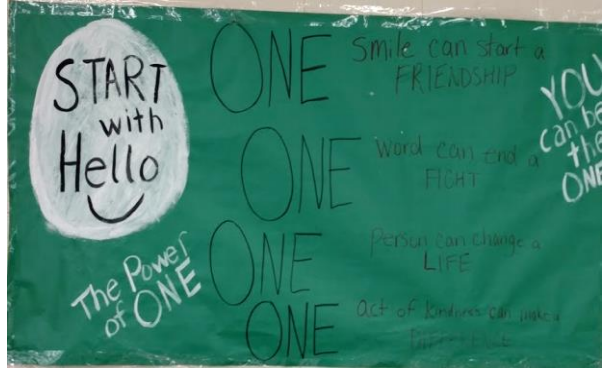 START
with
Hello
The Power
of ONE
ONE Smile can start a
FRIENDSHIP
ONE Word can end a
FIGHT
ONE Person can change a
LIFE
ONE act of kindness can make a
DIFFERENCE
YOU
can be
the
ONE